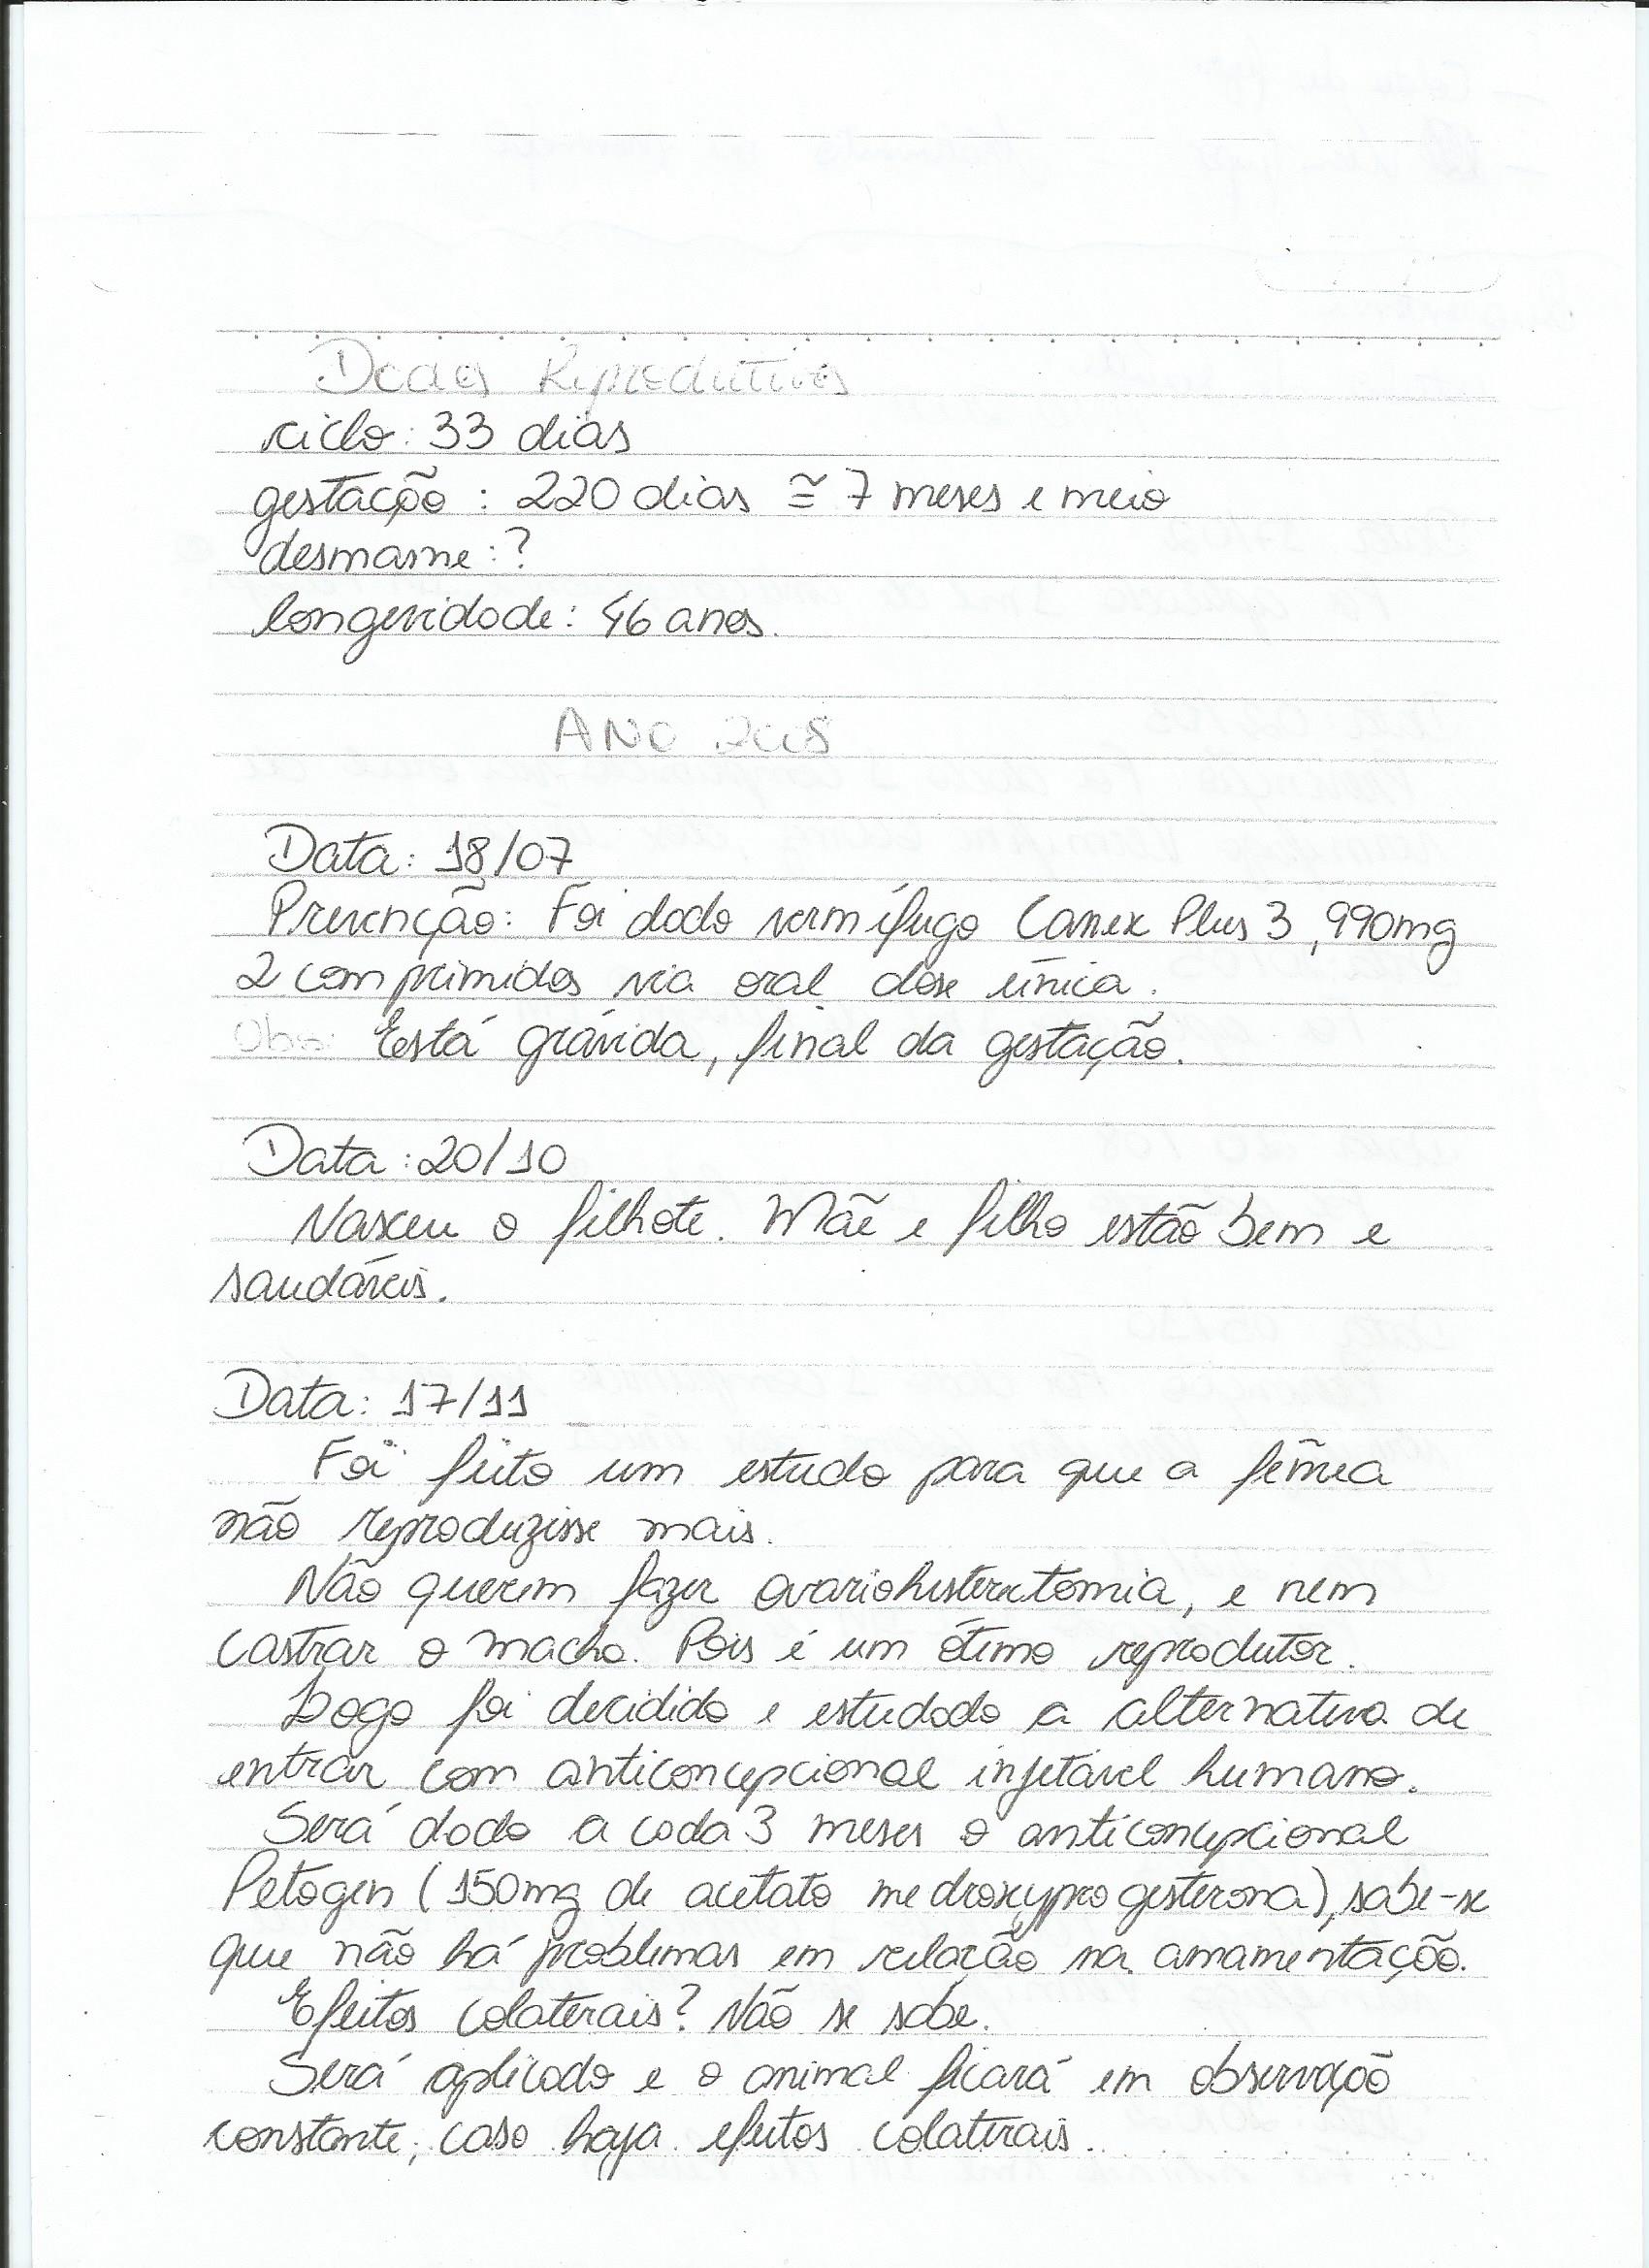 Dados Reprodutivos
ciclo: 33 dias
gestação : 220 dias ≅ 7 meses e meio
desmame: ?
longevidade: 46 anos.
ANO 2008
Data: 18/07
Prevenção: Foi dado vermífugo Canex Plus 3, 990mg
2 comprimidos via oral dose única.
Obs: Está grávida, final da gestação.
Data: 20/10
Nasceu o filhote. Mãe e filho estão bem e
saudáveis.
Data: 17/11
Foi feito um estudo para que a fêmea
não reproduzisse mais.
Não querem fazer ovariohisterectomia, e nem
castrar o macho. Pois é um ótimo reprodutor.
Logo foi decidido e estudado a alternativa de
entrar com anticoncepcional injetável humano.
Será dado a cada 3 meses o anticoncepcional
Petogen (150mg de acetato medroxyprogesterona), sabe-se
que não há problemas em relação na amamentação.
Efeitos colaterais? Não se sabe.
Será aplicado e o animal ficará em observação
constante, caso haja efeitos colaterais.